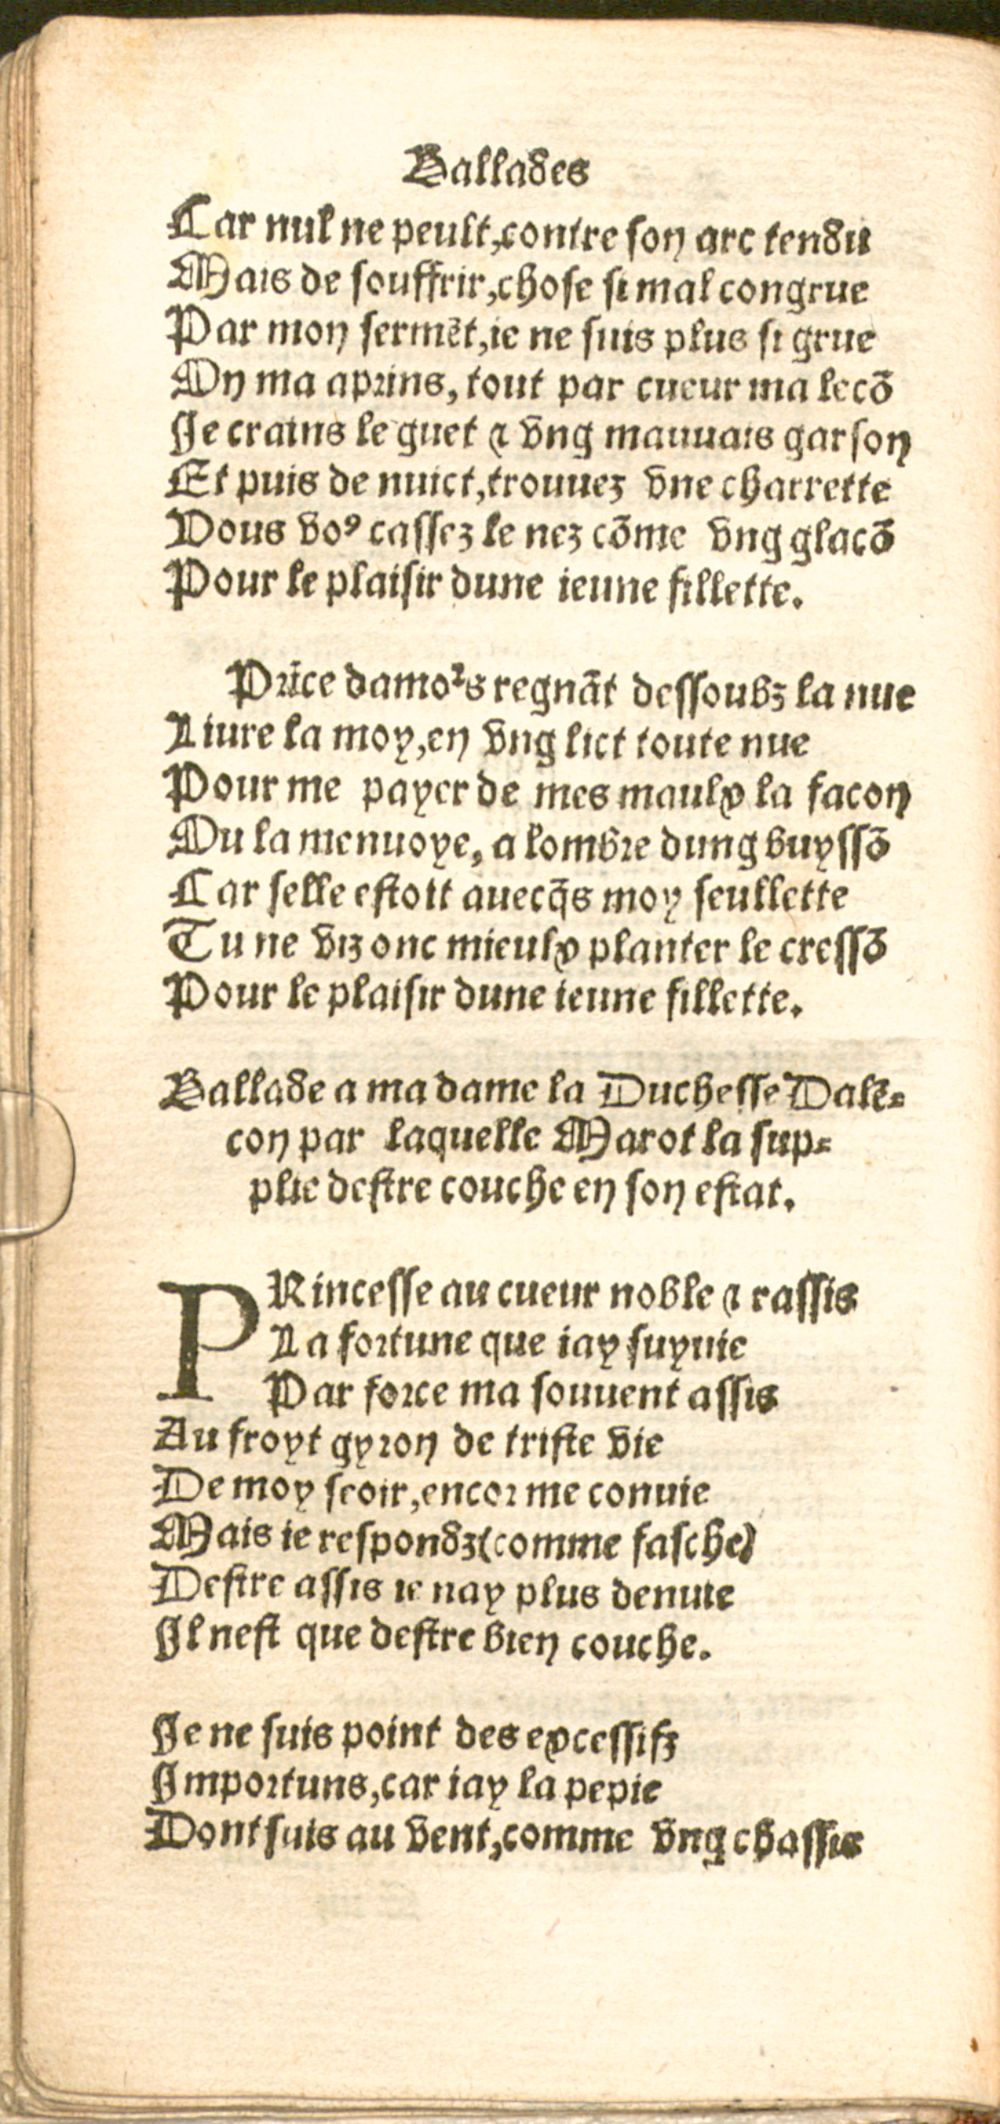 Ballades
Car nul ne peult,contre son arc tendu
Mais de souffrir,chose si mal congrue
Par mon sermēt,ie ne suis plus si grue
On ma aprins, tout par cueur ma lecō
Je crains le guet ⁊ vng mauuais garson
Et puis de nuict,trouuez vne charrette
Vous voꝰ cassez le nez cōme vng glacō
Pour le plaisir dune ieune fillette.
Prīce damoᷣs regnāt dessoubz la nue
Liure la moy,en vng lict toute nue
Pour me payer de mes maulx la facon
Ou la menuoye, a lombre dung buyssō
Car selle estoit auecq̄s moy seullette
Tu ne viz onc mieulx planter le cressō
Pour le plaisir dune ieune fillette.
Ballade a ma dame la Duchesse Dalē-
con par laquelle Marot la sup-
plie destre couche en son estat.
PRincesse au cueur noble ⁊ rassis
La fortune que iay suyuie
Par force ma souuent assis
Au froyt gyron de triste vie
De moy seoir,encor me conuie
Mais ie respondz(comme fasche)
Destre assis ie nay plus denuie
Il nest que destre bien couche.
Je ne suis point des excessifz
Importuns,car iay la pepie
Dont suis au vent,comme vng chassis